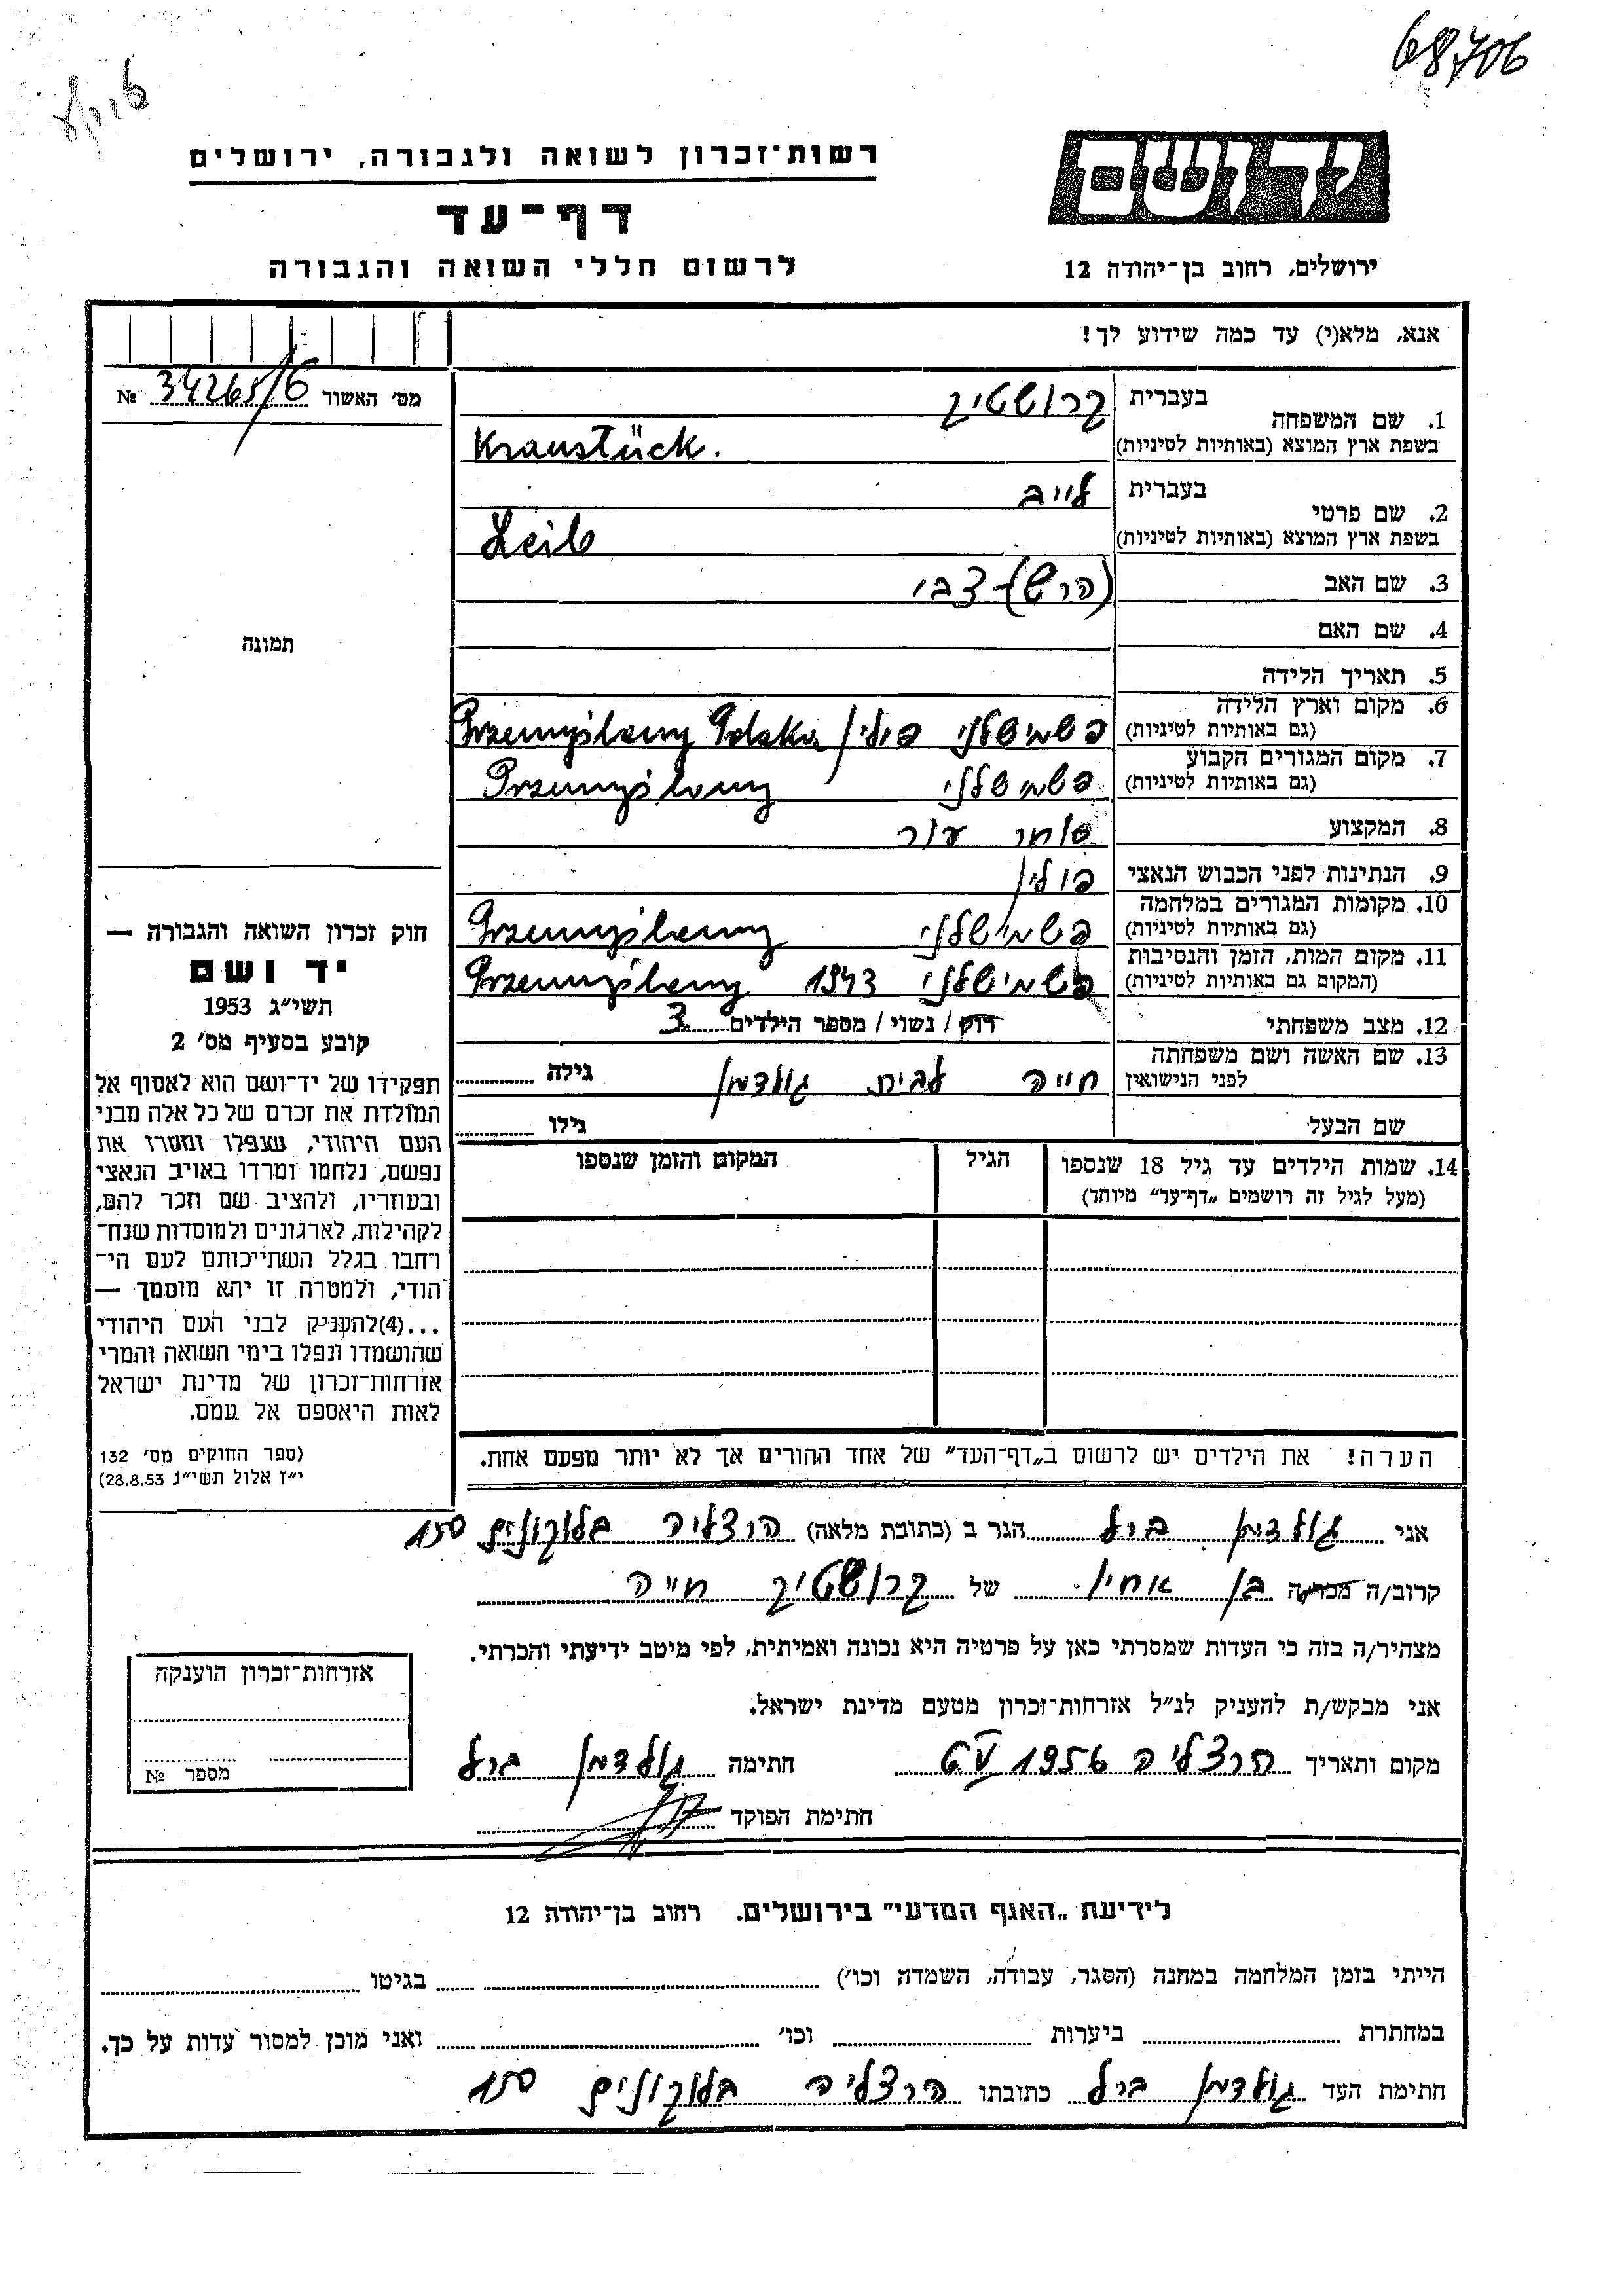 68706
רשות־זכרון לשואה ולגבורה, ירושלים
יד ושם
דף־עד
לרשום חללי השואה והגבורה
ירושלים, רחוב בן־יהודה 12
אנא, מלא(י) עד כמה שידוע לך!
מס׳ האשור 34265/6 №
1. שם המשפחה בעברית קרושטיק
בשפת ארץ המוצא (באותיות לטיניות) Kraustück.
2. שם פרטי בעברית לייב
בשפת ארץ המוצא (באותיות לטיניות) Leib
3. שם האב (הרש)-צבי
4. שם האם
5. תאריך הלידה
6. מקום וארץ הלידה (גם באותיות לטיניות) פשמישלני פולין Przemyślany Polska
7. מקום המגורים הקבוע (גם באותיות לטיניות) פשמישלני Przemyślany
8. המקצוע סוחר עור
9. הנתינות לפני הכבוש הנאצי פולין
10. מקומות המגורים במלחמה (גם באותיות לטיניות) פשמישלני Przemyślany
11. מקום המות, הזמן והנסיבות (המקום גם באותיות לטיניות) פשמישלני 1943 Przemyślany
12. מצב משפחתי רוק / נשוי / מספר הילדים 3
13. שם האשה ושם משפחתה לפני הנישואין חייה לבית גולדמן גילה
שם הבעל גילו
14. שמות הילדים עד גיל 18 שנספו הגיל המקום והזמן שנספו
(מעל לגיל זה רושמים „דף־עד” מיוחד)
הערה! את הילדים יש לרשום ב„דף־העד” של אחד ההורים אך לא יותר מפעם אחת.
תמונה
חוק זכרון השואה והגבורה —
יד ושם
תשי״ג 1953
קובע בסעיף מס׳ 2
תפקידו של יד־ושם הוא לאסוף אל
המולדת את זכרם של כל אלה מבני
העם היהודי, שנפלו ומסרו את
נפשם, נלחמו ומרדו באויב הנאצי
ובעוזריו, ולהציב שם וזכר להם,
לקהילות, לארגונים ולמוסדות שנח־
רחבו בגלל השתייכותם לעם הי־
הודי, ולמטרה זו יהא מוסמך —
...(4)להעניק לבני העם היהודי
שהושמדו ונפלו בימי השואה והמרי
אזרחות־זכרון של מדינת ישראל
לאות היאספם אל עמם.
(ספר החוקים מס׳ 132
י״ז אלול תשי״ג 28.8.53)
אני גולדמן ברל הגר ב (כתובת מלאה) הרצליה בלוקונים 150
קרוב/ה מכר/ה בן אחין של קרושטיק חייה
מצהיר/ה בזה כי העדות שמסרתי כאן על פרטיה היא נכונה ואמיתית, לפי מיטב ידיעתי והכרתי.
אני מבקש/ת להעניק לנ״ל אזרחות־זכרון מטעם מדינת ישראל.
מקום ותאריך הרצליה 1956 חתימה גולדמן ברל
חתימת הפוקד
אזרחות־זכרון הוענקה
מספר №
לידיעת „האגף המדעי” בירושלים. רחוב בן־יהודה 12
הייתי בזמן המלחמה במחנה (הסגר, עבודה, השמדה וכו׳) בגיטו
במחתרת ביערות וכו׳ ואני מוכן למסור עדות על כך.
חתימת העד גולדמן ברל כתובתו הרצליה בלוקונים 150